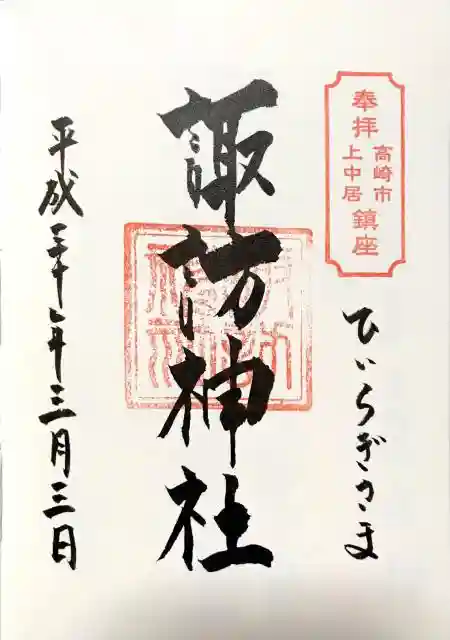 奉拝
高崎市
上中居
鎮座
ひいらぎさま
諏訪神社
平成三十一年三月三日